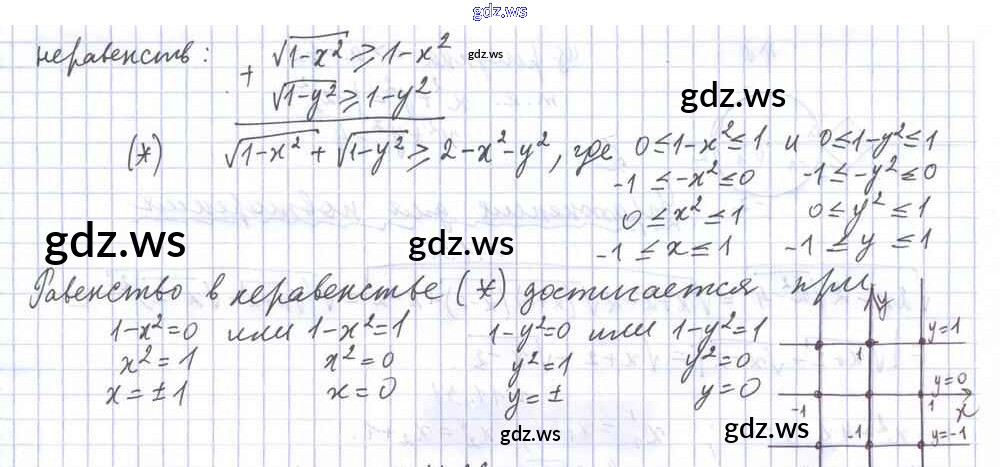 gdz.ws
неравенств: √1-x² ⩾ 1-x²
gdz.ws
+
√1-y² ⩾ 1-y²
gdz.ws
(*) √1-x² + √1-y² ⩾ 2-x²-y², где 0≤1-x²≤1 и 0≤1-y²≤1
-1 ≤ -x² ≤ 0 -1 ≤ -y² ≤ 0
0 ≤ x² ≤ 1 0 ≤ y² ≤ 1
gdz.ws gdz.ws
-1 ≤ x ≤ 1 -1 ≤ y ≤ 1
Равенство в неравенстве (*) достигается при
y
1-x²=0 или 1-x²=1 1-y²=0 или 1-y²=1
y=1
x²=1 x²=0 y²=1 y²=0
1
x=±1 x=0 y=± y=0
y=0
-1 1 x
gdz.ws gdz.ws
-1 y=-1